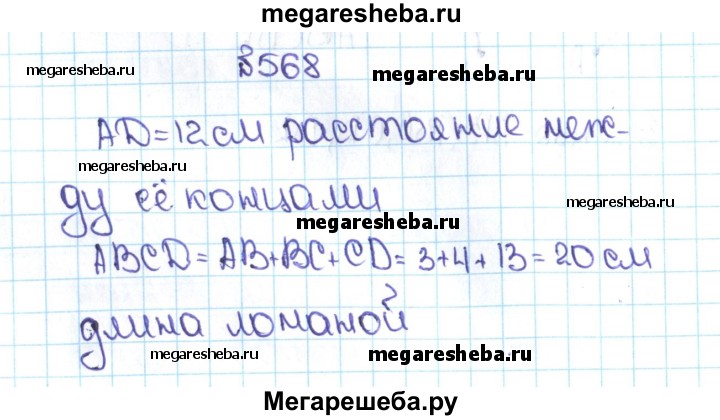 megaresheba.ru
№568
megaresheba.ru megaresheba.ru
AD=12см расстояние меж-
megaresheba.ru
ду её концами
megaresheba.ru megaresheba.ru
ABCD= AB+BC+CD= 3+4+13=20 см
длина ломаной
megaresheba.ru megaresheba.ru
Мегарешеба.ру